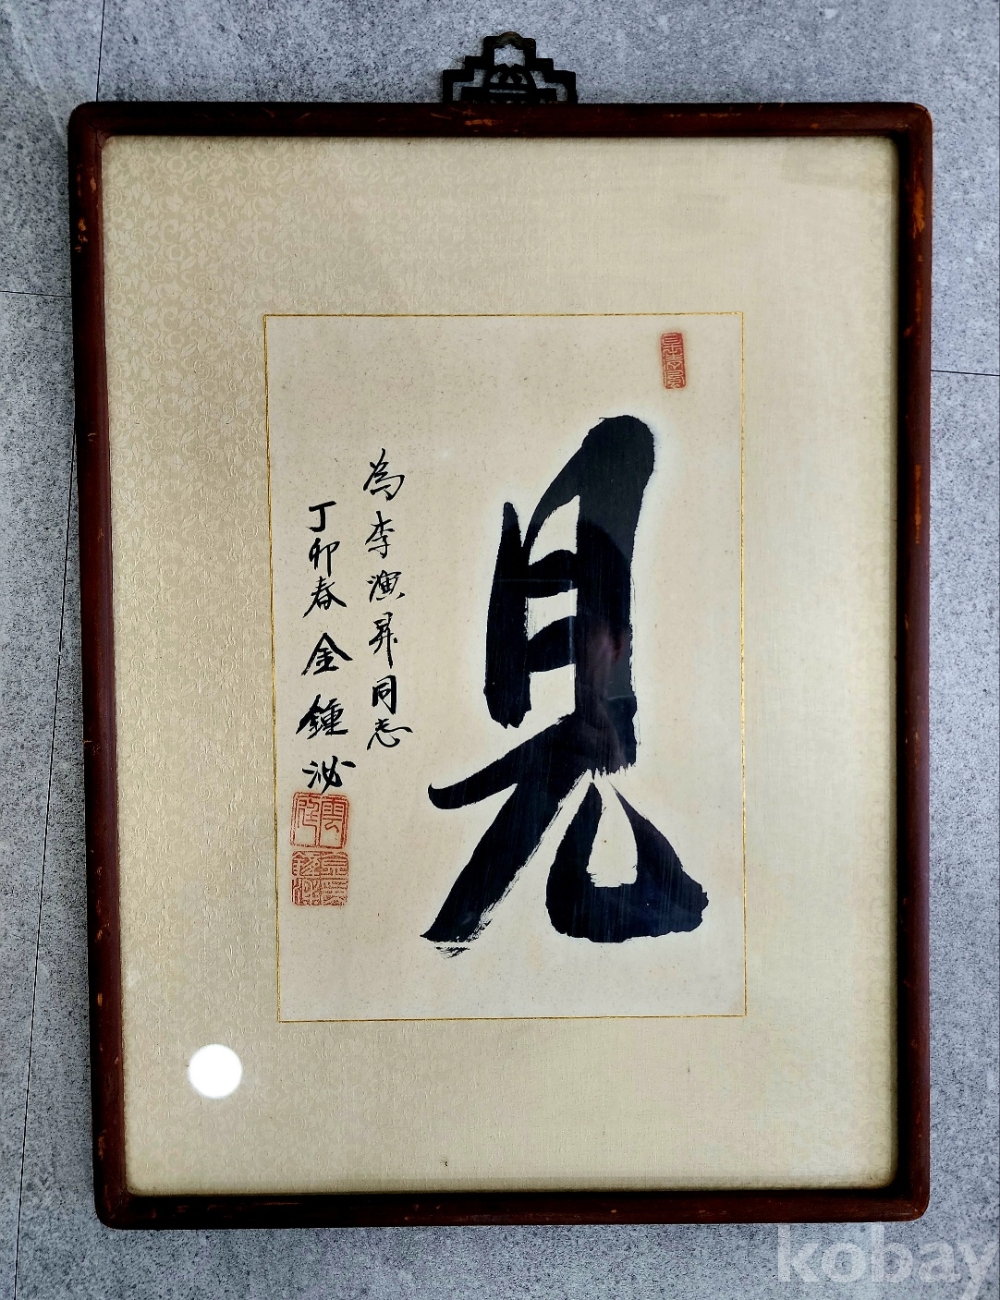 見
為李演昇同志
丁卯春 金鍾泌
雲庭
kobay